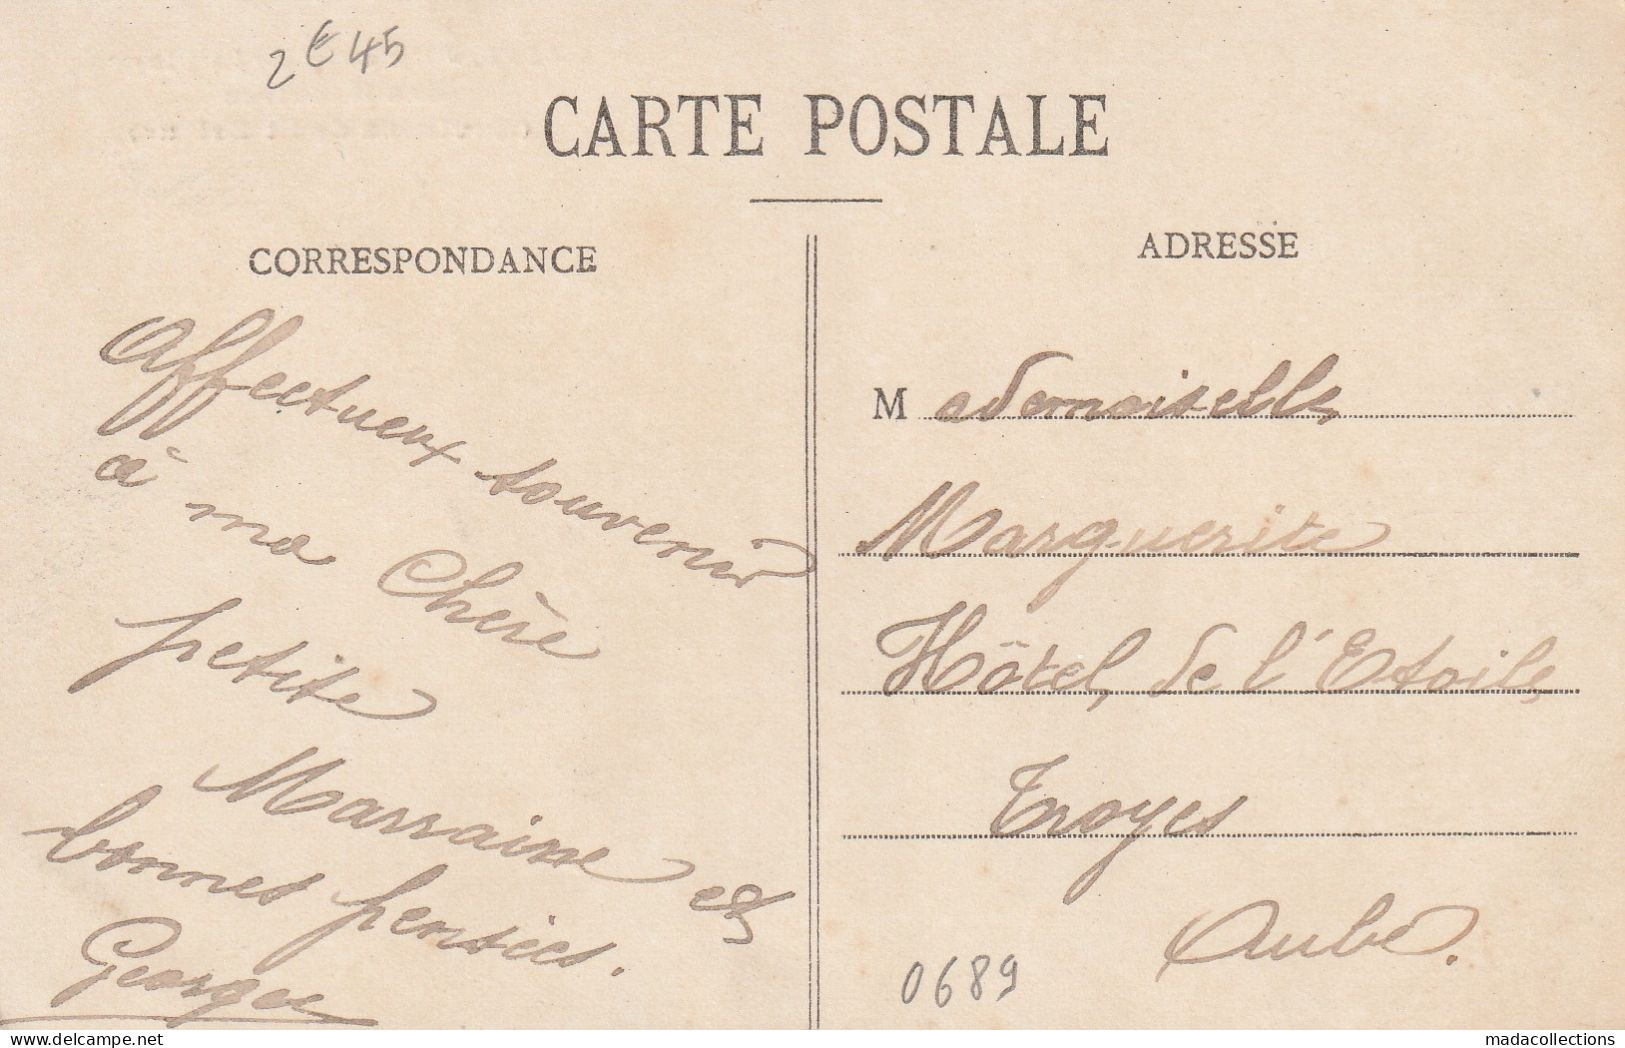 2€45
CARTE POSTALE
CORRESPONDANCE
Affectueux souvenir
à ma Chère
petite
Marraine et
bonnes pensées.
Georges
ADRESSE
Mademoiselle
Marguerite
Hôtel de l'Etoile
Troyes
Aube.
0689
www.delcampe.net
madacollections